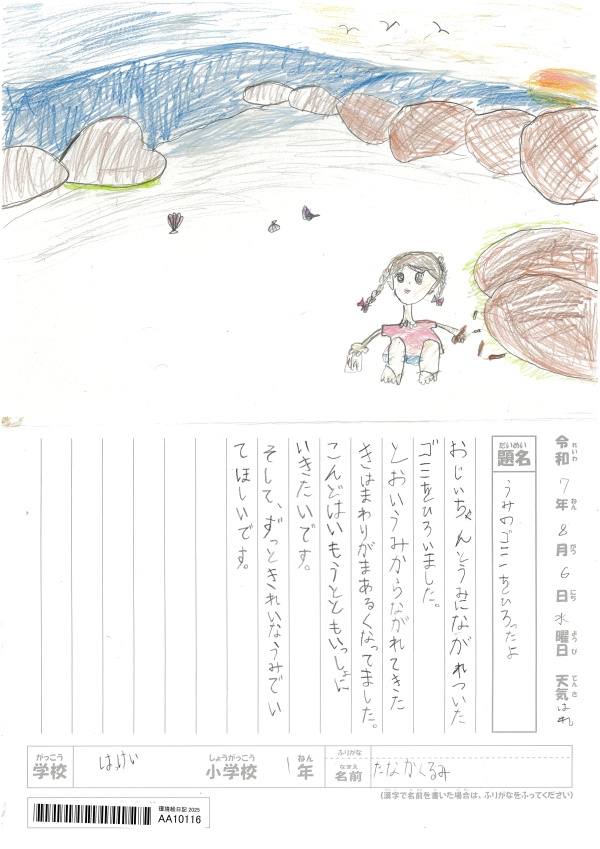 令和7年8月6日水曜日 天気はれ
れいわ ねん がつ にち ようび てんき
だいめい
題名
うみのゴミをひろったよ
おじいちゃんとうみにながれついた
ゴミをひろいました。
とおいうみからながれてきた
きはまわりがまあるくなってました。
こんどはいもうとともいっしょに
いきたいです。
そして、ずっときれいなうみでい
てほしいです。
がっこう しょうがっこう ねん ふりがな
学校 はっけい 小学校 1年
なまえ
名前 たなかくるみ
(漢字で名前を書いた場合は、ふりがなをふってください)
環境絵日記 2025
AA10116